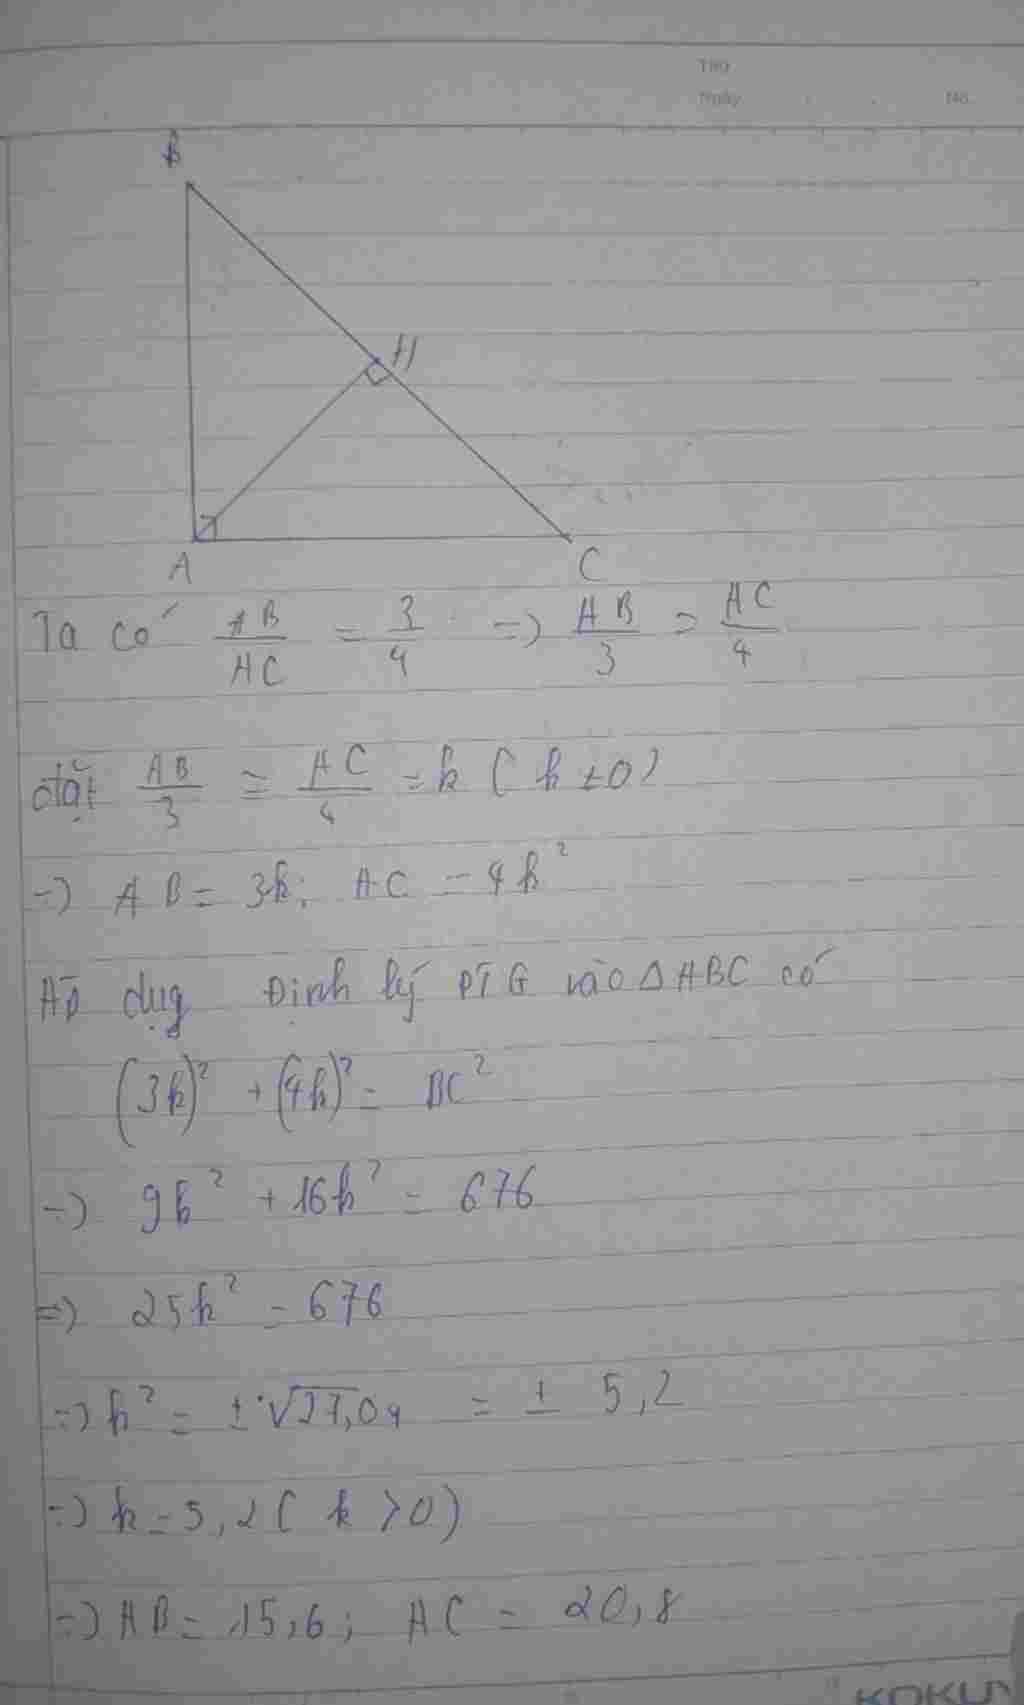 Thứ
Ngày . . No.
B
H
A
C
Ta có AB/AC = 3/4 => AB/3 = AC/4
đặt AB/3 = AC/4 = k ( k ≠ 0 )
=> AB = 3k; AC = 4k²
Áp dụg Định lý PTG vào Δ ABC có
(3k)² + (4k)² = BC²
=> 9k² + 16k² = 676
=> 25k² = 676
=> k² = ±√27,04 = ± 5,2
=> k = 5,2 ( k > 0)
=> AB = 15,6; AC = 20,8